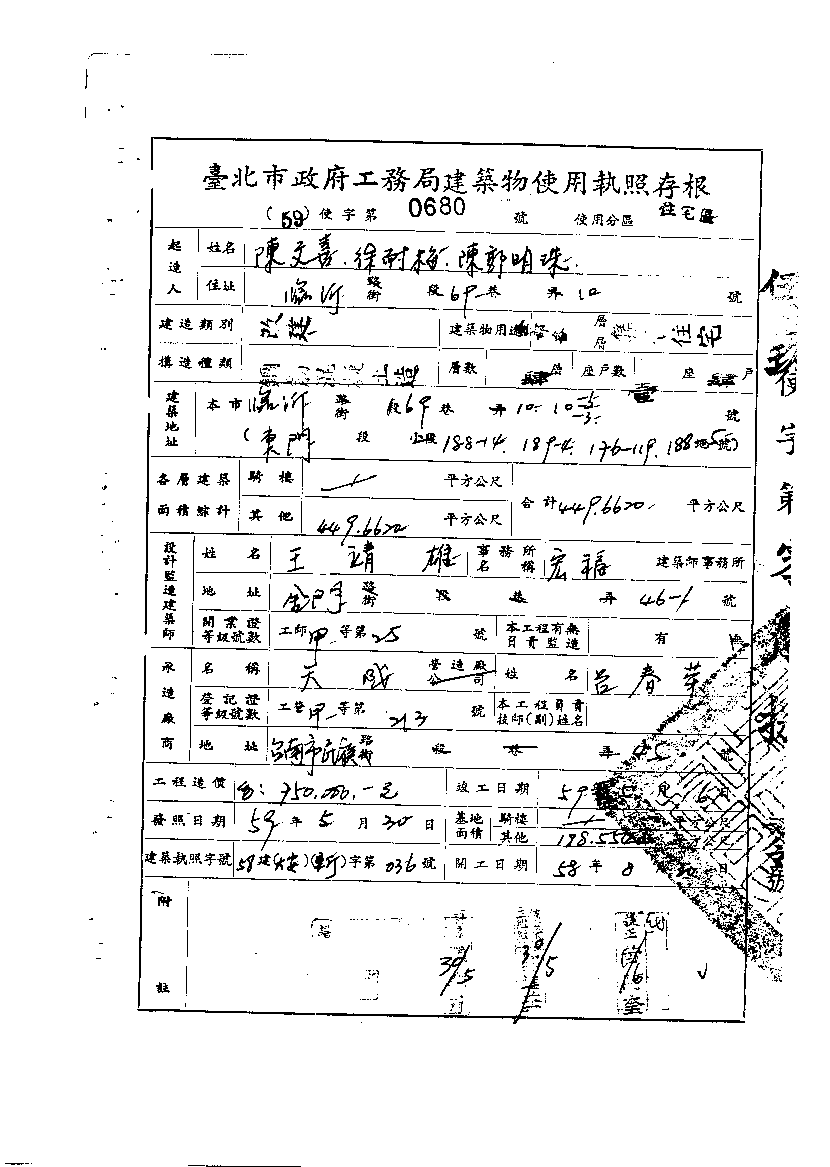 臺北市政府工務局建築物使用執照存根
(59)使字第 0680 號 使用分區 住宅區
起造人 姓名 陳文喜、徐耐梅、陳郭明珠
住址 臨沂 路街 段 69 巷 弄 10 號
建造類別 改建 建築物用途 層 層 住宅
構造種類 層數 肆層 座戶數 壹 座 肆 戶
建築地址 本市 臨沂 路街 段 69 巷 弄 10-10-5 -3 號
(東門 段 小段 188-14、189-4、176-119、188 地號)
各層建築面積綜計 騎樓 平方公尺 合計 449.6620 平方公尺
其他 449.6620 平方公尺
設計監造建築師 姓名 王靖雄 事務所名稱 宏福 建築師事務所
地址 金門 路街 段 巷 弄 46-1 號
開業證等級號數 工師 甲 等第 25 號 本工程有無負責監造 有
承造廠商 名稱 天成 營造廠公司 姓名 呂春華
登記證等級號數 工營 甲 等第 213 號 本工程負責技師(副)姓名
地址 台南市民族 路街 段 巷 弄 45 號
工程造價 750,000.-元 竣工日期 59 年 5 月 6 日
發照日期 59 年 5 月 30 日 基地面積 騎樓 平方公尺
其他 198.550 平方公尺
建築執照字號 58 建 字第 036 號 開工日期 58 年 8 日
附註
30/5 30/5
使字第 號